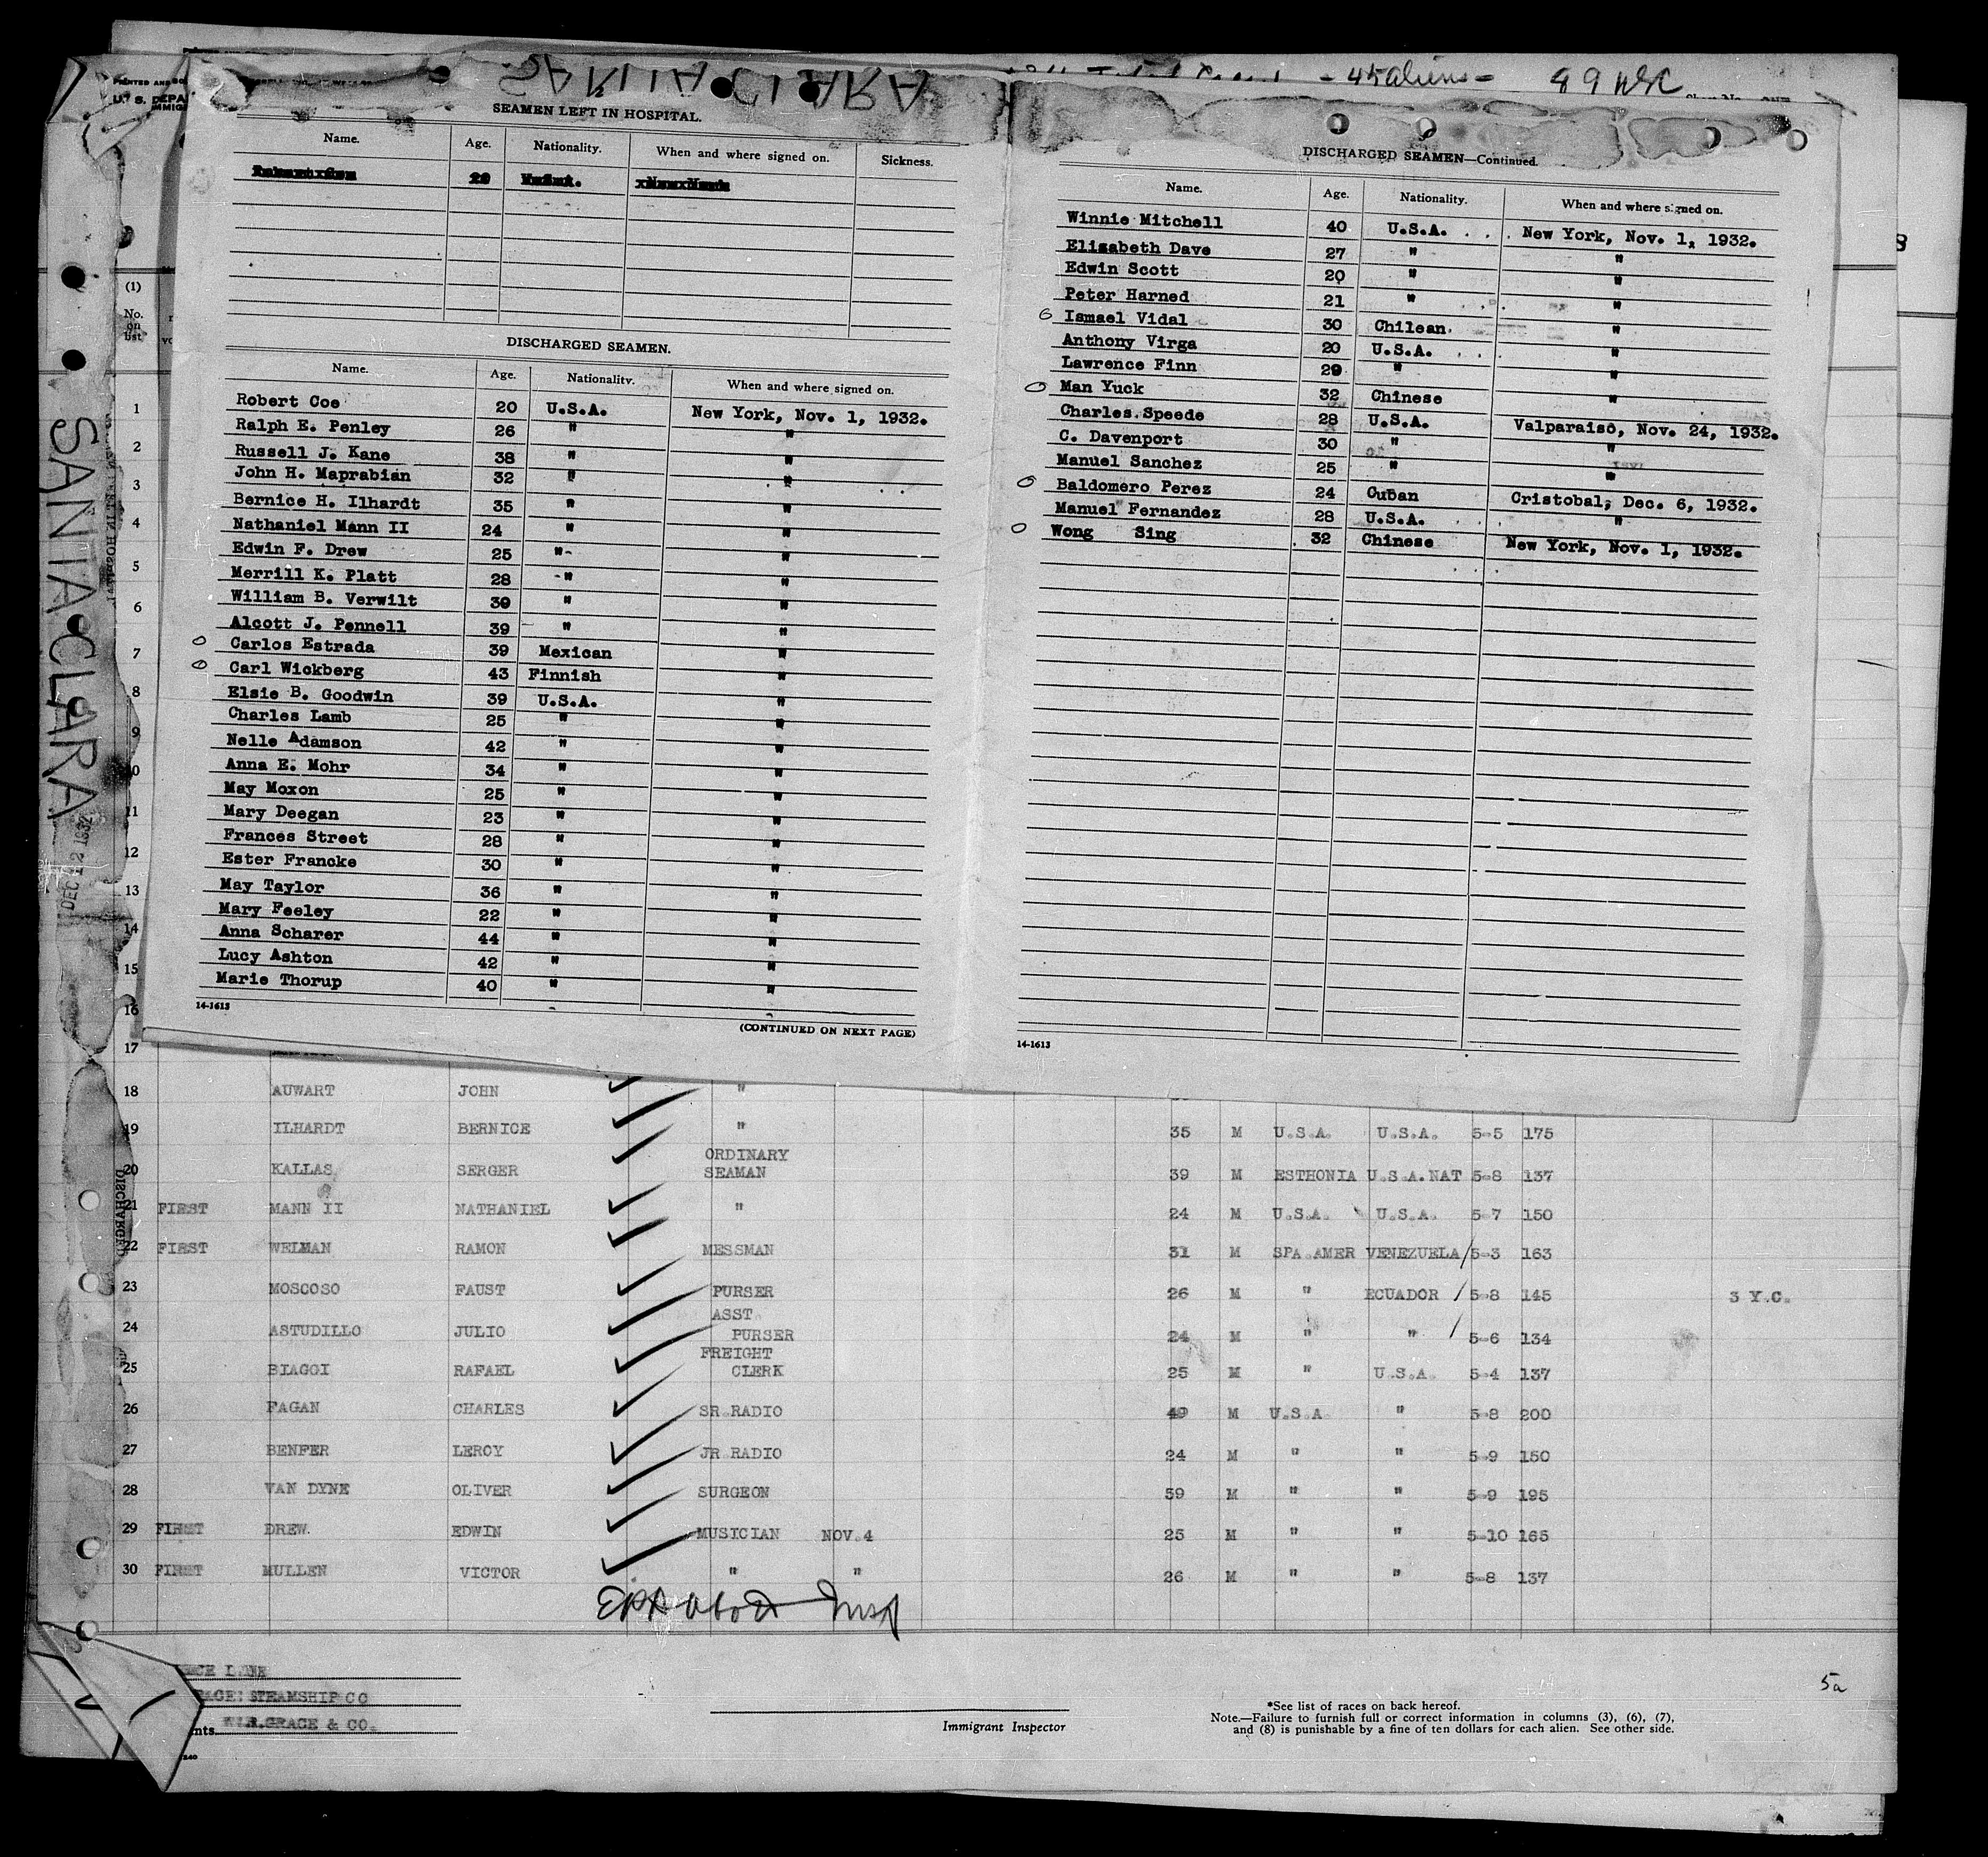 PRINTED AND
U. S. DEPA
IMMIG
-45 aliens-
SANTA CLARA
SANTA CLARA
DEC 12 1932
DISCHARGED
(1)
No. on list
SEAMEN LEFT IN HOSPITAL.
Name. Age. Nationality. When and where signed on. Sickness.
DISCHARGED SEAMEN.
Name. Age. Nationality. When and where signed on.
Robert Coe 20 U.S.A. New York, Nov. 1, 1932.
Ralph E. Penley 26 " "
Russell J. Kane 38 " "
John H. Maprabian 32 " "
Bernice H. Ilhardt 35 " "
Nathaniel Mann II 24 " "
Edwin F. Drew 25 " "
Merrill K. Platt 28 " "
William B. Verwilt 30 " "
Alcott J. Pennell 39 " "
Carlos Estrada 39 Mexican "
Carl Wickberg 43 Finnish "
Elsie B. Goodwin 39 U.S.A. "
Charles Lamb 25 " "
Nelle Adamson 42 " "
Anna E. Mohr 34 " "
May Moxon 25 " "
Mary Deegan 23 " "
Frances Street 28 " "
Ester Francke 30 " "
May Taylor 36 " "
Mary Feeley 22 " "
Anna Scharer 44 " "
Lucy Ashton 42 " "
Marie Thorup 40 " "
14-1613
(CONTINUED ON NEXT PAGE)
DISCHARGED SEAMEN—Continued.
Name. Age. Nationality. When and where signed on.
Winnie Mitchell 40 U.S.A. New York, Nov. 1, 1932.
Elizabeth Dave 27 " "
Edwin Scott 20 " "
Peter Harned 21 " "
Ismael Vidal 30 Chilean "
Anthony Virga 20 U.S.A. "
Lawrence Finn 29 " "
Man Yuck 32 Chinese "
Charles Speede 28 U.S.A. Valparaiso, Nov. 24, 1932.
C. Davenport 30 " "
Manuel Sanchez 25 " "
Baldomero Perez 24 Cuban Cristobal, Dec. 6, 1932.
Manuel Fernandez 28 U.S.A. "
Wong Sing 32 Chinese New York, Nov. 1, 1932.
14-1613
1
2
3
4
5
6
7
8
9
10
11
12
13
14
15
16
17
18 AUWART JOHN "
19 ILHARDT BERNICE " 35 M U.S.A. U.S.A. 5-5 175
20 KALLAS SERGER ORDINARY SEAMAN 39 M ESTHONIA U.S.A.NAT 5-8 137
21 FIRST MANN II NATHANIEL " 24 M U.S.A. U.S.A. 5-7 150
22 FIRST WELMAN RAMON MESSMAN 31 M SPA.AMER VENEZUELA 5-3 163
23 MOSCOSO FAUST PURSER 26 M " ECUADOR 5-8 145 3 Y.C.
24 ASTUDILLO JULIO ASST. PURSER 24 M " " 5-6 134
25 BIAGGI RAFAEL FREIGHT CLERK 25 M " U.S.A. 5-4 137
26 FAGAN CHARLES SR.RADIO 49 M U.S.A " 5-8 200
27 BENFER LEROY JR RADIO 24 M " " 5-9 150
28 VAN DYNE OLIVER SURGEON 59 M " " 5-9 195
29 FIRST DREW EDWIN MUSICIAN NOV.4 25 M " " 5-10 165
30 FIRST MULLEN VICTOR " " 26 M " " 5-8 137
STEAMSHIP CO
GRACE & CO.
Immigrant Inspector
*See list of races on back hereof.
Note.—Failure to furnish full or correct information in columns (3), (6), (7),
and (8) is punishable by a fine of ten dollars for each alien. See other side.
5a